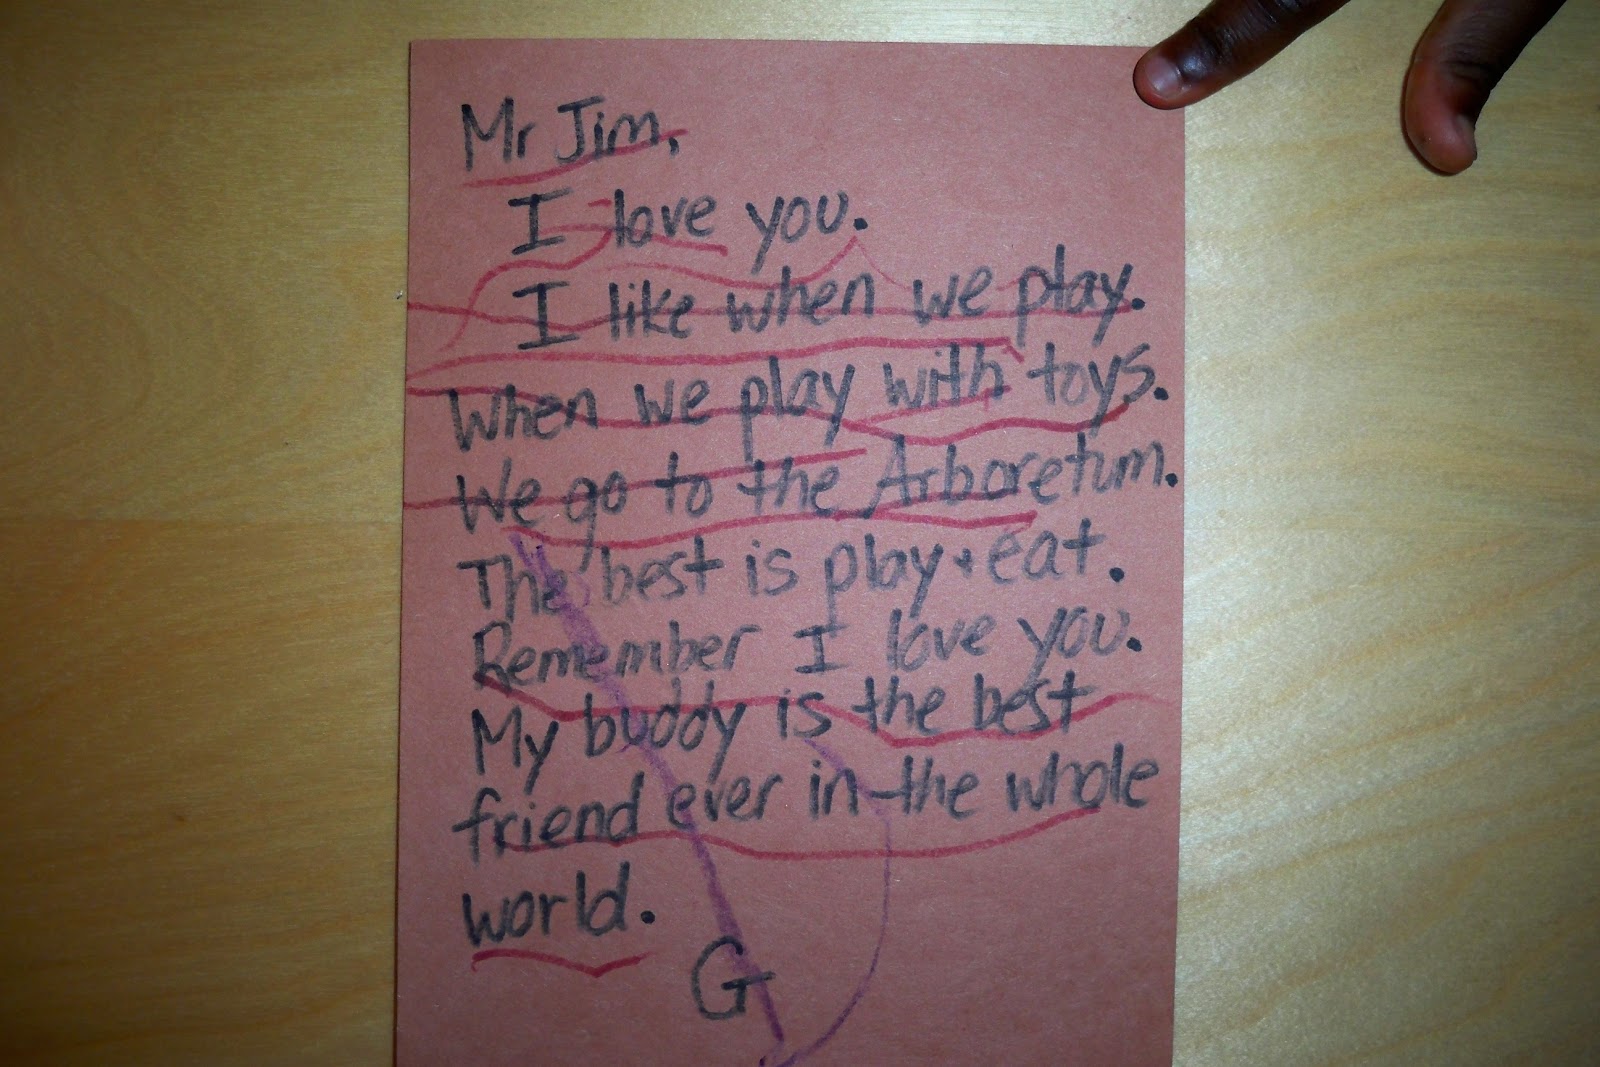 Mr Jim,
I love you.
I like when we play.
When we play with toys.
We go to the Arboretum.
The best is play + eat.
Remember I love you.
My buddy is the best
friend ever in the whole
world.
G